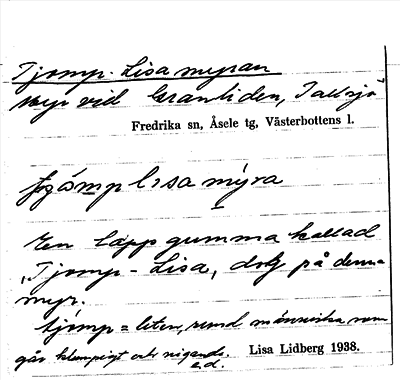 Tjomp-Lisamyran
myr vid Granliden, Tallsjö
Fredrika sn, Åsele tg, Västerbottens l.
lisa mýra
En lappgumma kallad
"Tjomp-Lisa, dog på denna
myr.
tjómp = liten, rund människa som
går klumpigt och nigande.
a.d.
Lisa Lidberg 1938.